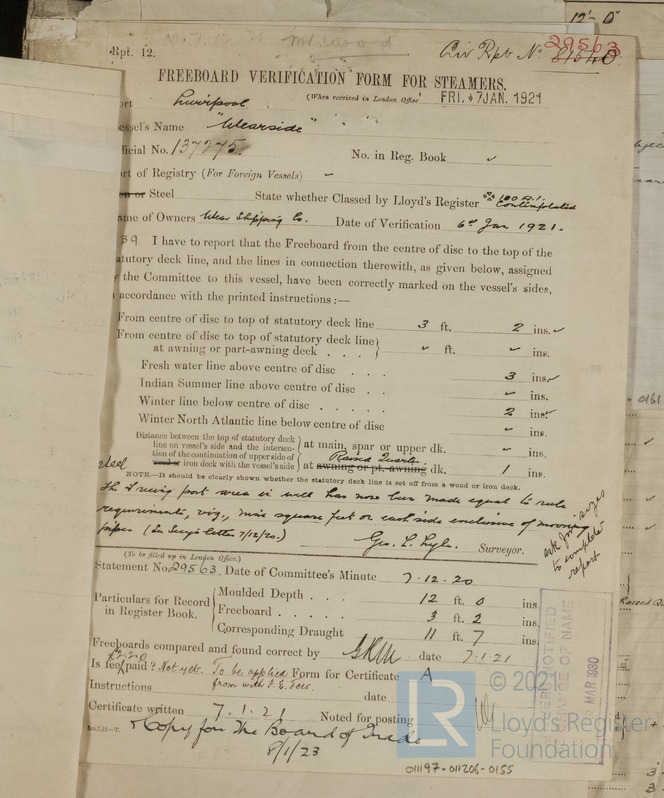 12'-0"
Rpt. 12.
Liv Rpt No 29563
FREEBOARD VERIFICATION FORM FOR STEAMERS.
(When received in London Office FRI. 7 JAN. 1921
ort Liverpool
essel's Name "Wearside"
ficial No. 137275. No. in Reg. Book
rt of Registry (For Foreign Vessels)
on or Steel State whether Classed by Lloyd's Register 100 A.1. Contemplated
ame of Owners Wear Shipping Co. Date of Verification 6th Jan 1921.
39 I have to report that the Freeboard from the centre of disc to the top of the
atutory deck line, and the lines in connection therewith, as given below, assigned
the Committee to this vessel, have been correctly marked on the vessel's sides,
accordance with the printed instructions :—
From centre of disc to top of statutory deck line 3 ft. 2 ins.
From centre of disc to top of statutory deck line
at awning or part-awning deck . . . ft. ins.
Fresh water line above centre of disc . . . 3 ins.
Indian Summer line above centre of disc . . ins.
Winter line below centre of disc . . . . . 2 ins.
Winter North Atlantic line below centre of disc ins.
Distance between the top of statutory deck
line on vessel's side and the intersec-
tion of the continuation of upper side of
steel wood or iron deck with the vessel's side
at main, spar or upper dk. ins.
Raised Quarter
at awning or pt. awning dk. 1 ins.
NOTE.—It should be clearly shown whether the statutory deck line is set off from a wood or iron deck.
The freeing port area in well has now been made equal to rule
requirements, viz., nine square feet on each side exclusive of mooring
pipes (See Secy's letter 7/12/20.)
Geo. L. Lyle. Surveyor.
ask for sizes
to complete
report
(To be filled up in London Office.)
Statement No. 29563. Date of Committee's Minute 7.12.20
Particulars for Record
in Register Book.
Moulded Depth . . . 12 ft. 0 ins.
Freeboard . . . . . 3 ft. 2 ins.
Corresponding Draught 11 ft. 7 ins.
Freeboards compared and found correct by date 7.1.21
Is fee paid? Not yet. To be applied Form for Certificate A
from with F.E. Fees.
Instructions date
Certificate written 7.1.21 Noted for posting
Copy for The Board of Trade
8/1/23
CHANGE OF NAME
MAR 1930
LR
© 2021
Lloyd's Register
Foundation
011197-011206-0155